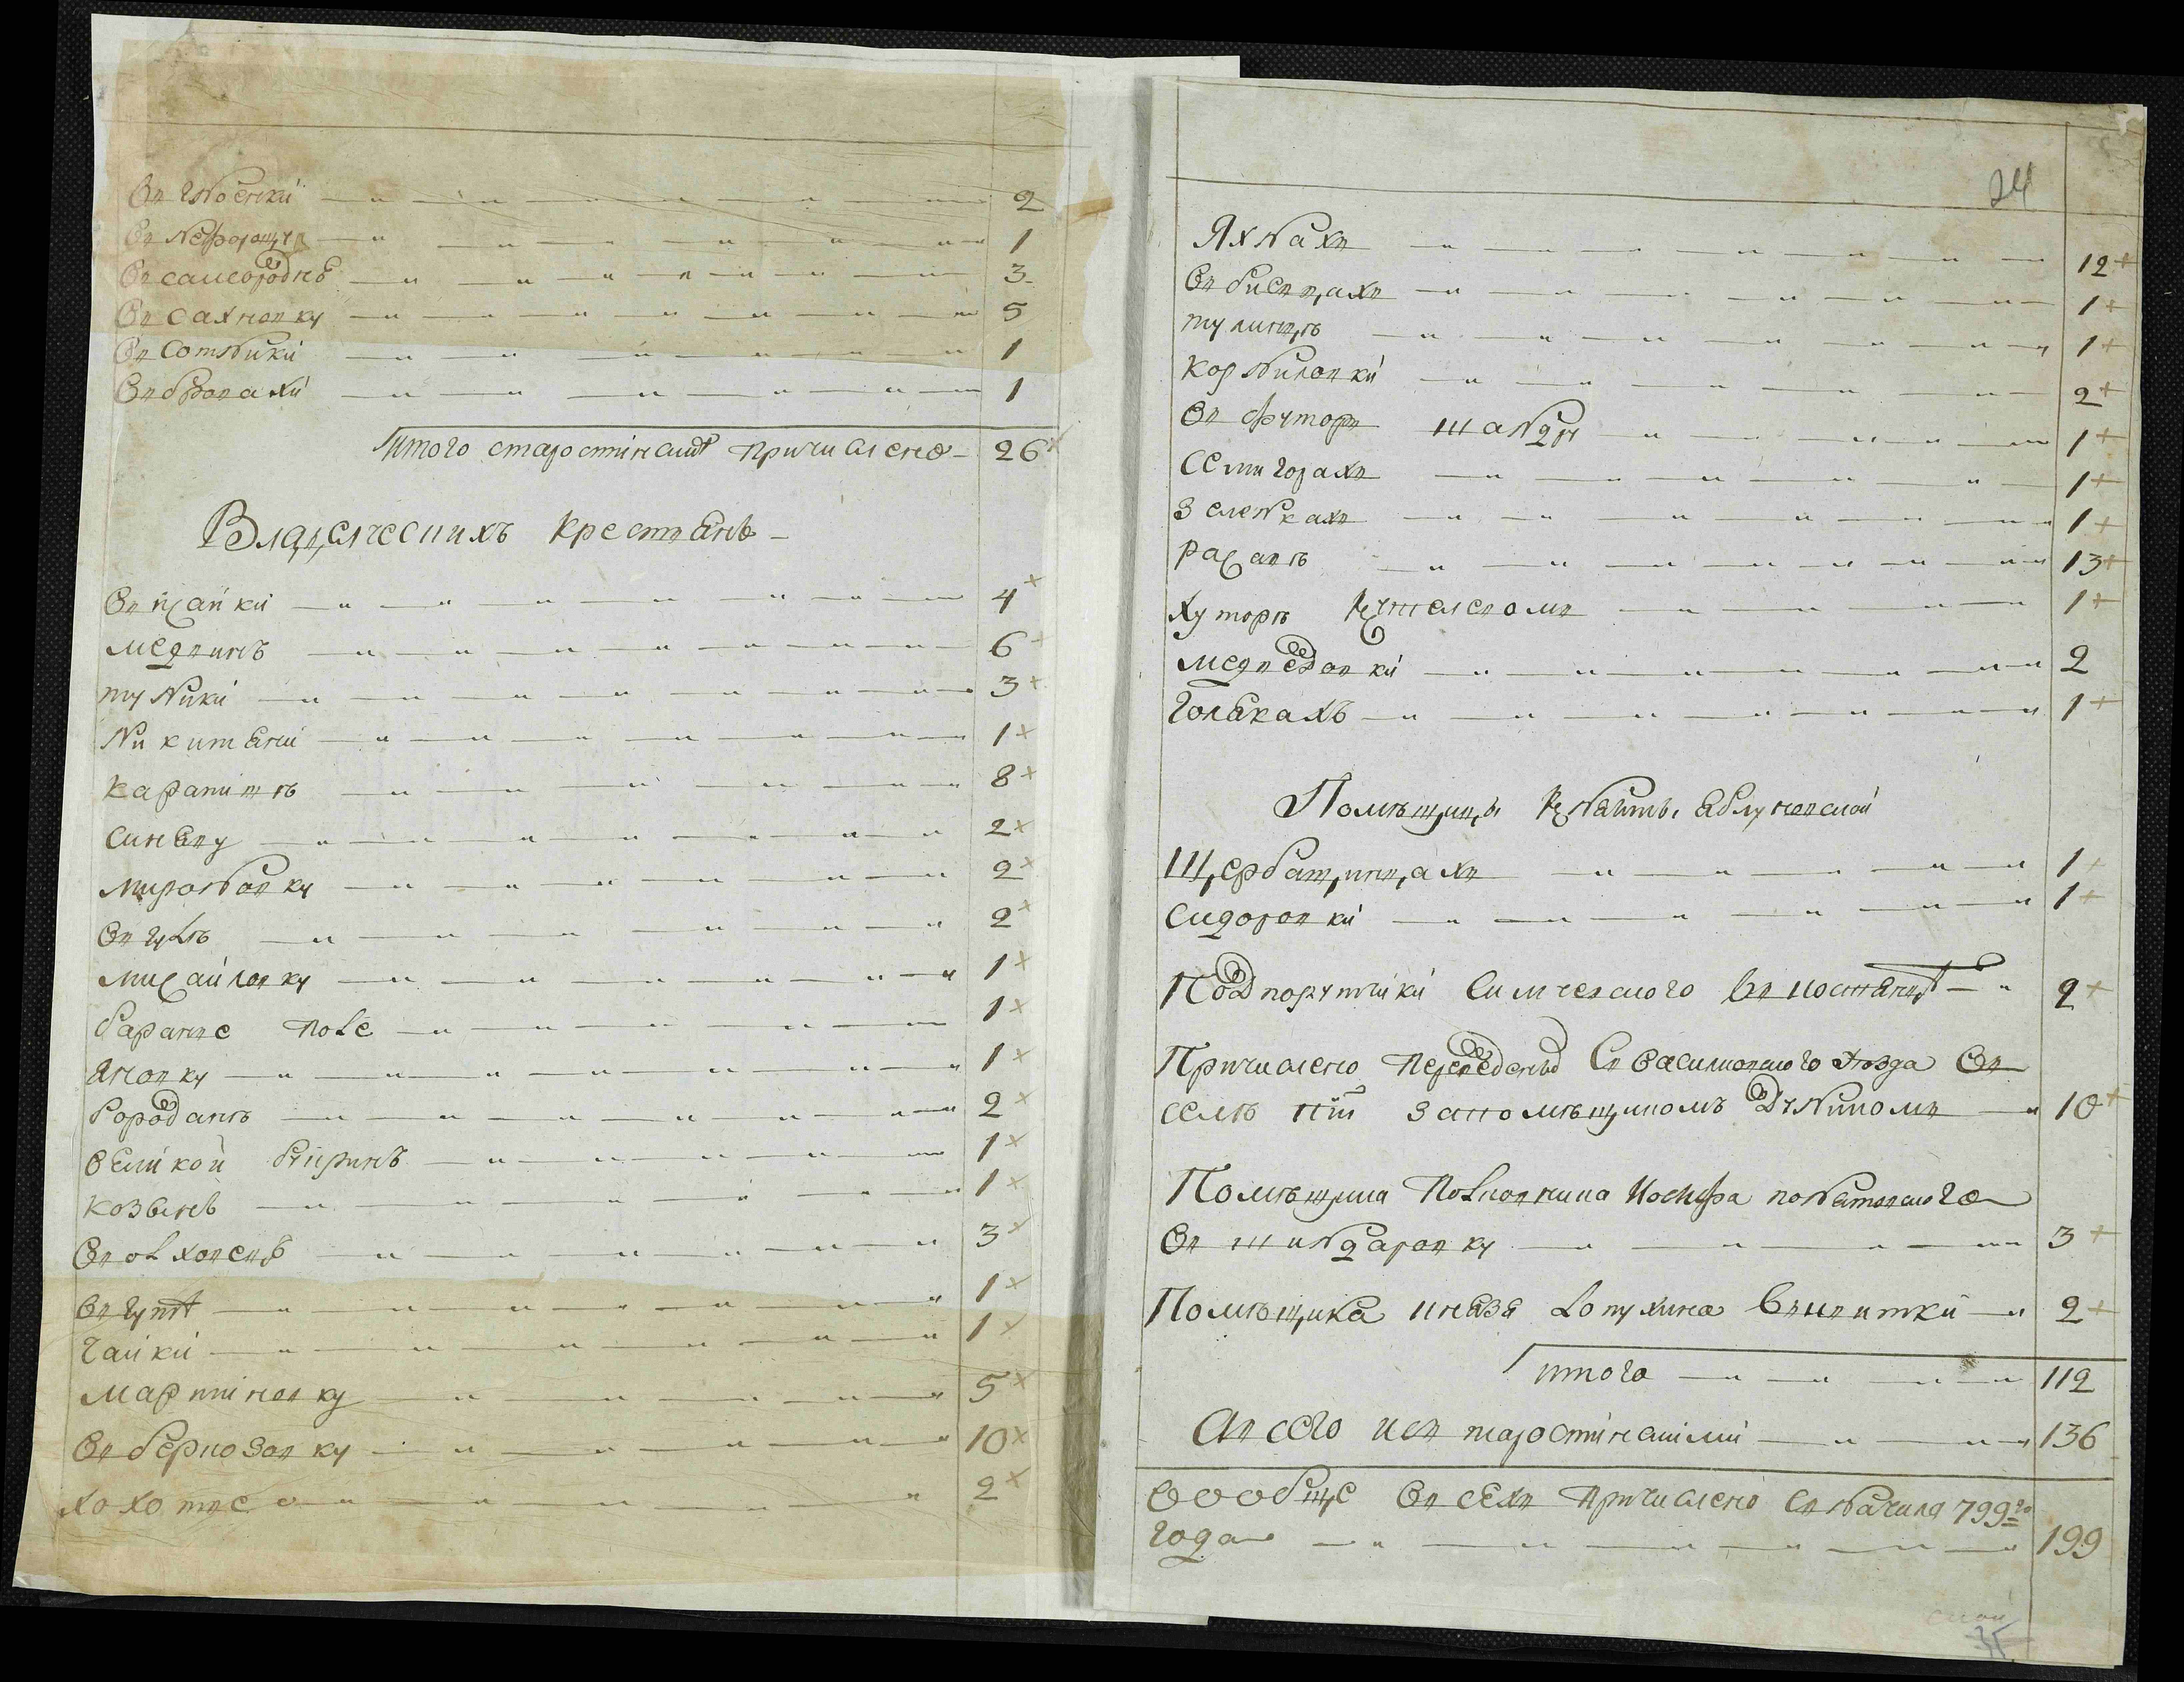 Въ Гноенки 2
Въ Нефорощу 1
Въ самородне 3
Въ сахновку 5
Въ Сотники 1
Въ бровахи 1
Итого старостинскихъ причислено 26
Владелческихъ крестьянъ
Въ исайки 4
медвинъ 6
туники 3
Никитяни 1
карапишъ 8
синяву 2
мироновку 2
2
михайловку 1
бараные поле 1
яновку 1
бородань 2
великой 1
козынъ 1
Въ олховецъ 3
Въ 1
Гайки 1
мартиновку 5
Въ беркозовку 10
хохотве 2
24
Яхнахъ 12
Въ бисовцахъ 1
тулинцѣ 1
корниловки 2
Въ хуторѣ 1
семигорахъ 1
зеленкахъ 1
расавѣ 13
хуторѣ 1
медведовки 2
Голякахъ 1
Помѣщицы яблуновской
Щербатинцахъ 1
сидоровки 1
Подпоручики 2
Причислено переведеныхъ съ василковского уѣзда въ
селѣ за помѣщикомъ 10
Помѣщика полковника иосифа
Въ шандаровку 3
Помѣщика князя лопухина въ квитки 2
итого 112
а всего и съ старостинскими 136
вообще въ сехъ причислено съ начала 799го
года 199